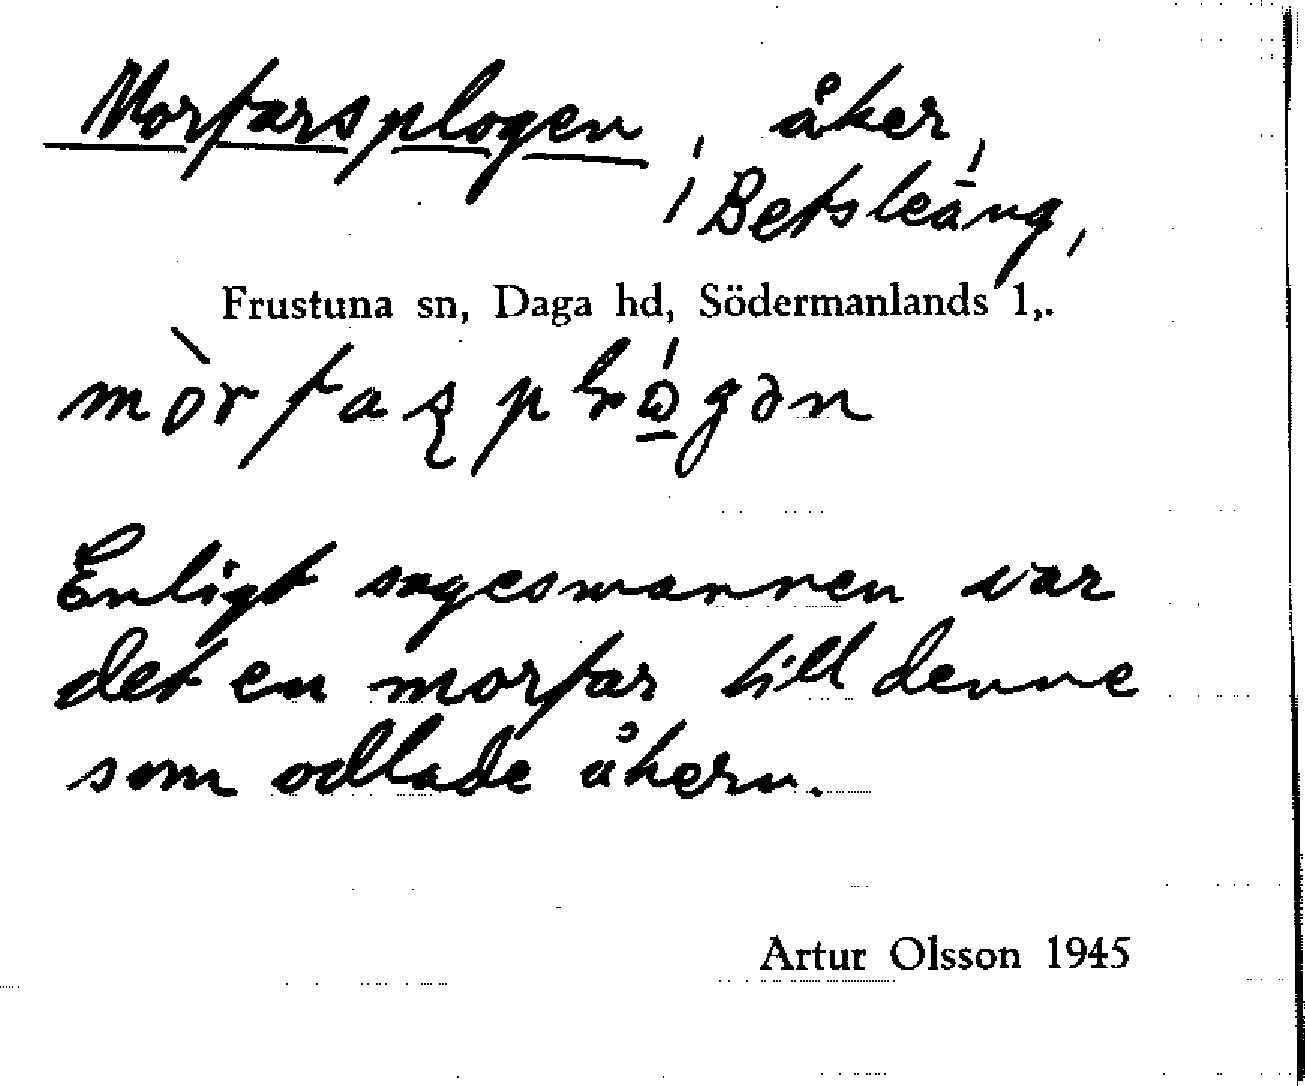 Morfarsplogen, åker,
Betsleäng,
Frustuna sn, Daga hd, Södermanlands l,.
Enligt sagesmannen var
det en morfar till denne
som odlade åkern.
Artur Olsson 1945